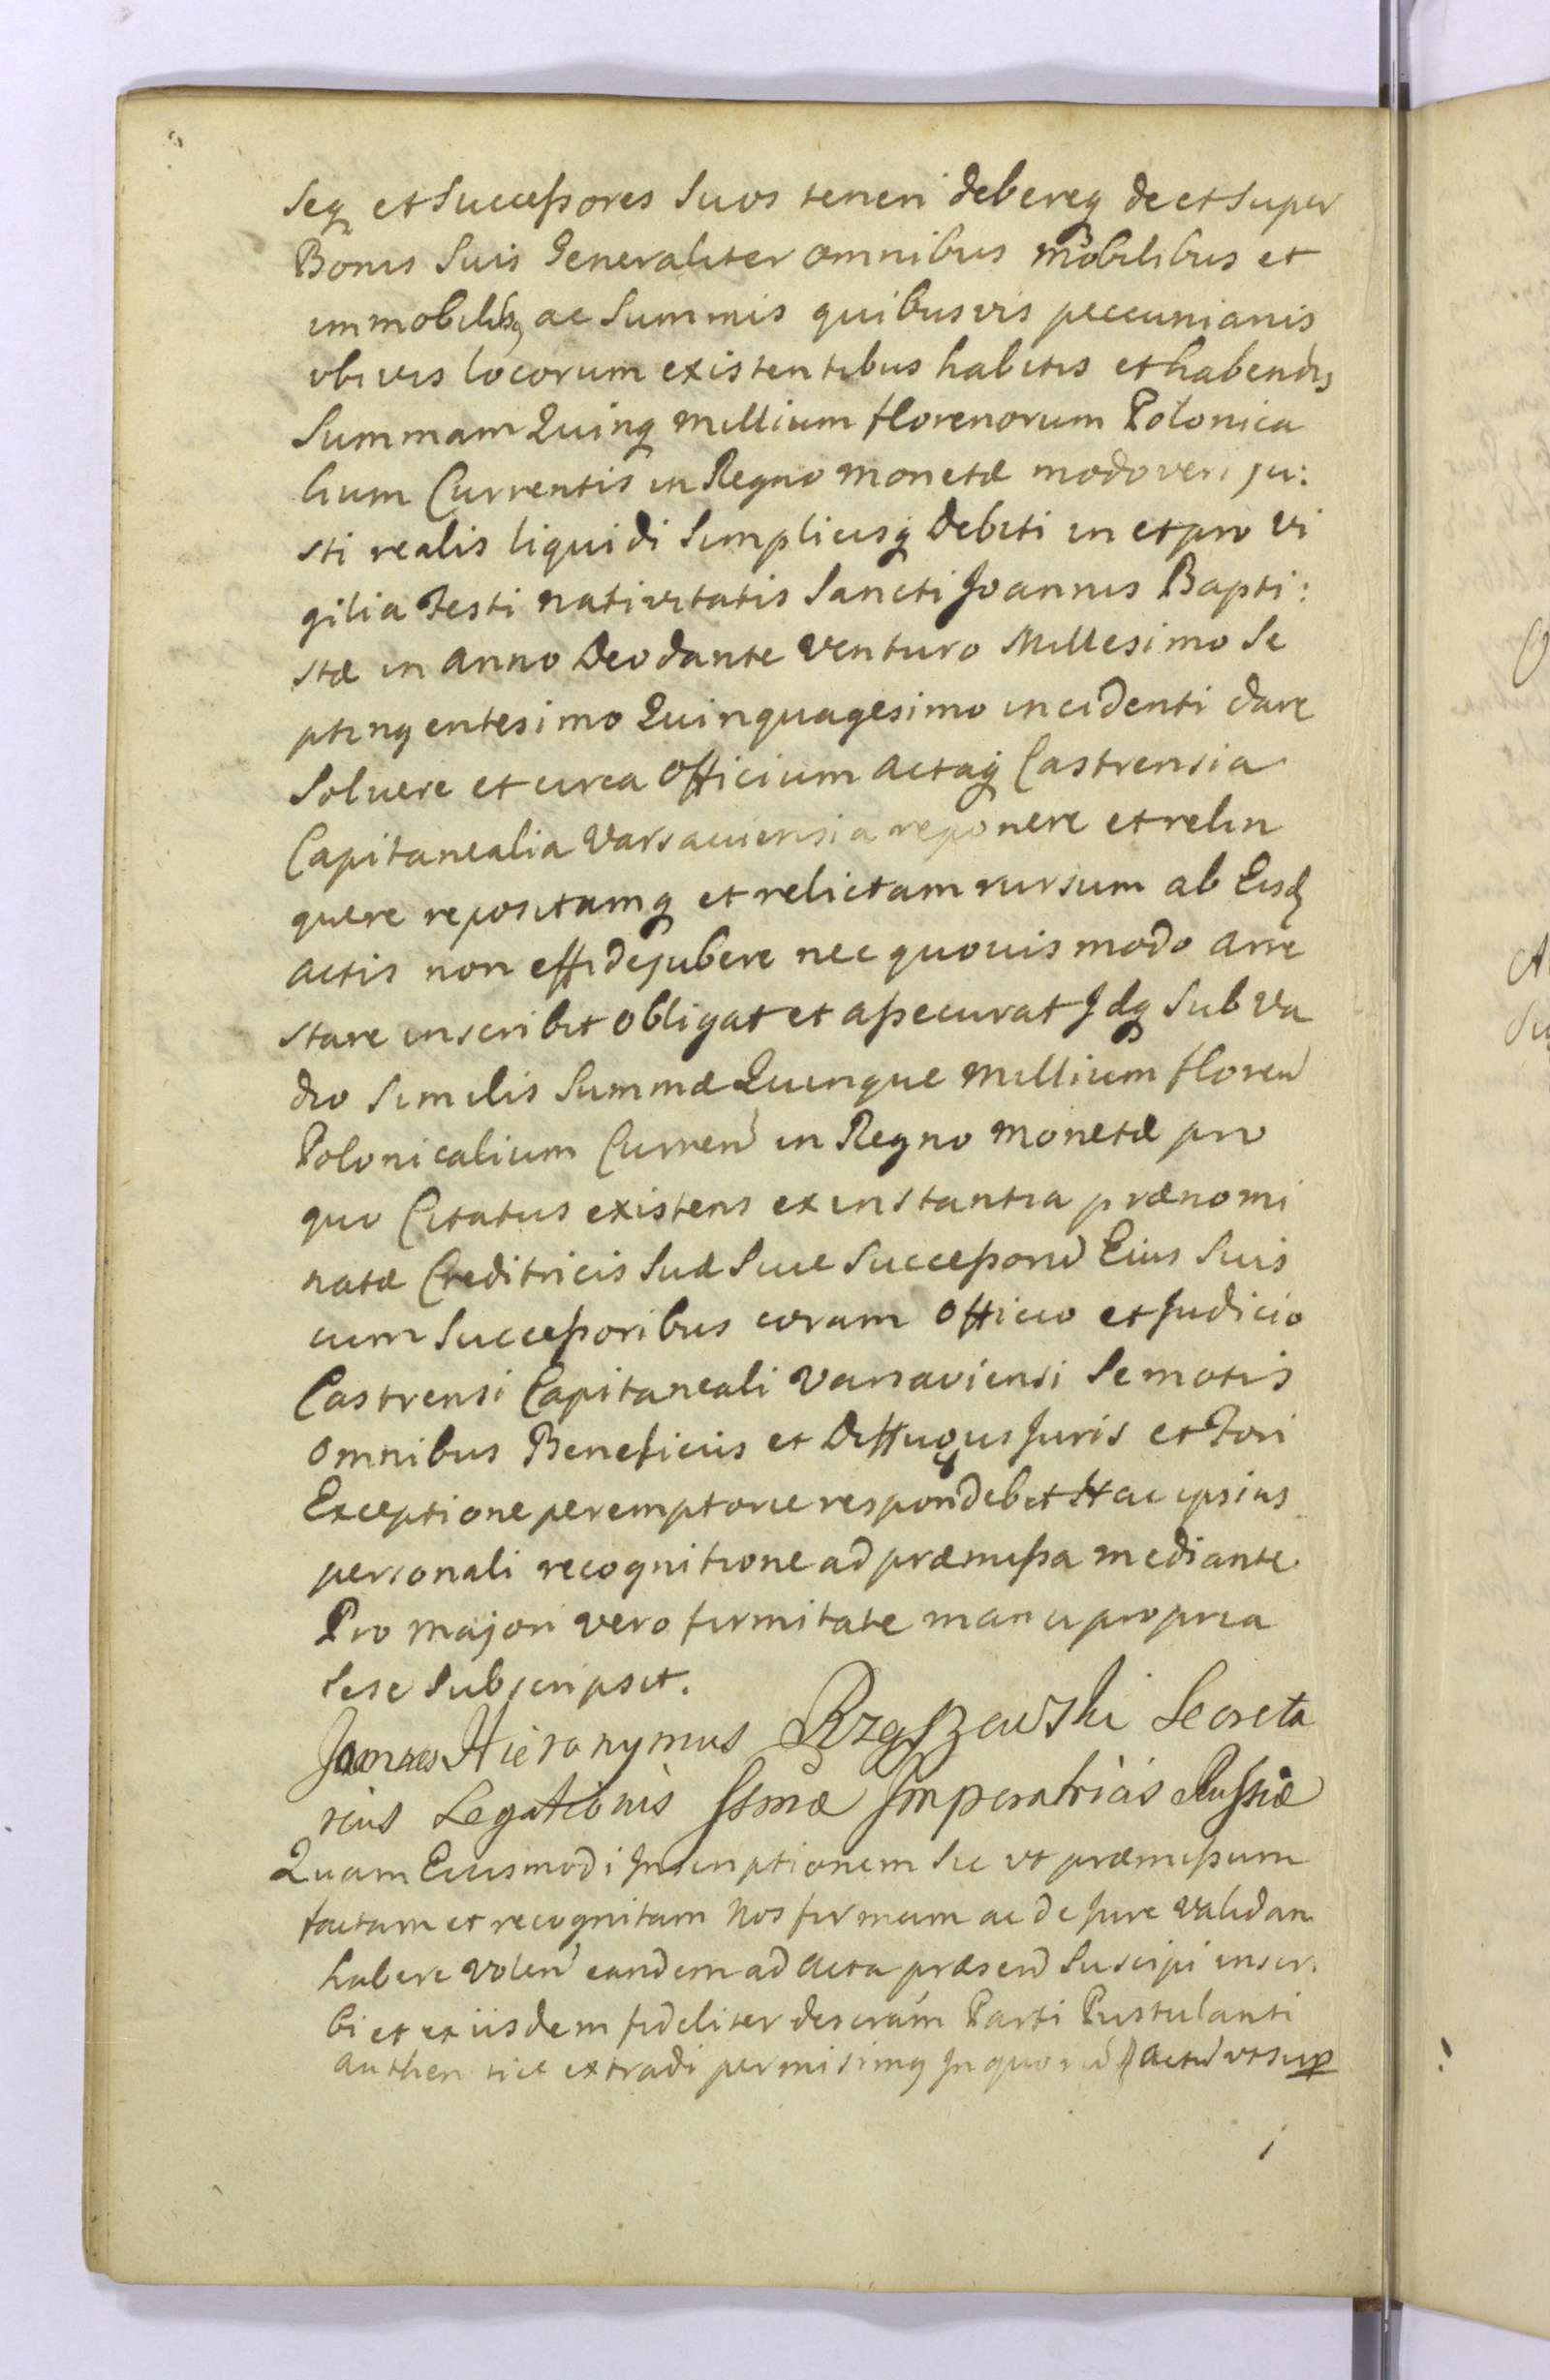 Seq et Successores Suos teneri debereq de et Super
Bonis Suis Generaliter omnibus mobilibus et
immobilibq ac Summis quibusvis peccuniariis
vbivis locorum existentibus habitis et habendis
Summam Quinq millium florenorum Polonica
lium Currentis in Regno monetæ modo veri ju:
sti realis liquidi Simplicisq Debiti in et pro vi
gilia Festi nativitatis Sancti Joannis Bapti:
stæ in anno Deo dante venturo Millesimo Se
ptingentesimo Quinquagesimo incidenti dare
Soluere et circa Officium actaq Castrensia
Capitanealia Varsaviensia reponere et relin
quere repositamq et relictam rursum ab Eisd
actis non effidejubere nec quouis modo arre
stare inscribit obligat et assecurat Jdq Sub va
dio Similis Summæ Quinque millium floren
Polonicalium Curren in Regno monetæ pro
quo Citatus existens ex instantia prænomi
natæ Creditricis Suæ Sive Successorum Eius Suis
cum Successoribus coram Officio et Judicio
Castrensi Capitaneali Varsaviensi Semotis
omnibus Beneficiis et Diffugiis Juris et Fori
Exceptione peremptorie respondebit Hac ipsius
personali recognitione ad præmissa mediante
Pro majori vero firmitate manu propria
Sese Subscripsit.
Joannes Hieronymus Rzęszewski Secreta
rius Legationis Ssmæ Imperatricis Russiæ
Quam Eiusmodi Inscriptionem Sic vt præmissum
factam et recognitam Nos firmam ac de Jure validam
habere volen eandem ad acta præsen Suscipi inscri
bi et ex iisdem fideliter descram Parti Postulanti
authentice extradi permisimq In quorum Actum vt sup